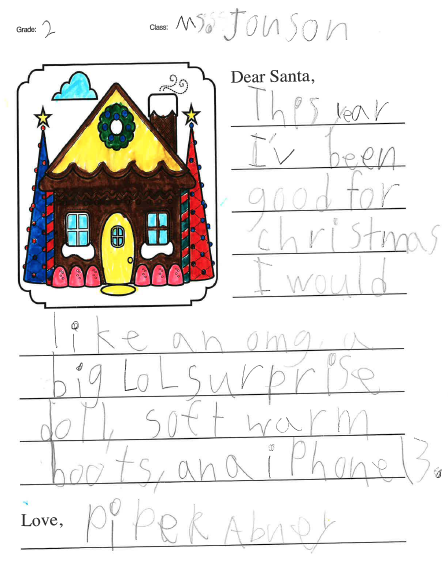 Grade: 2 Class: Ms. Jonson
Dear Santa,
This year
I'v been
good for
christmas
I would
like an omg, a
big LoL surprise
doll, soft warm
boots, an a iPhone 13.
Love, PiPeR Abney